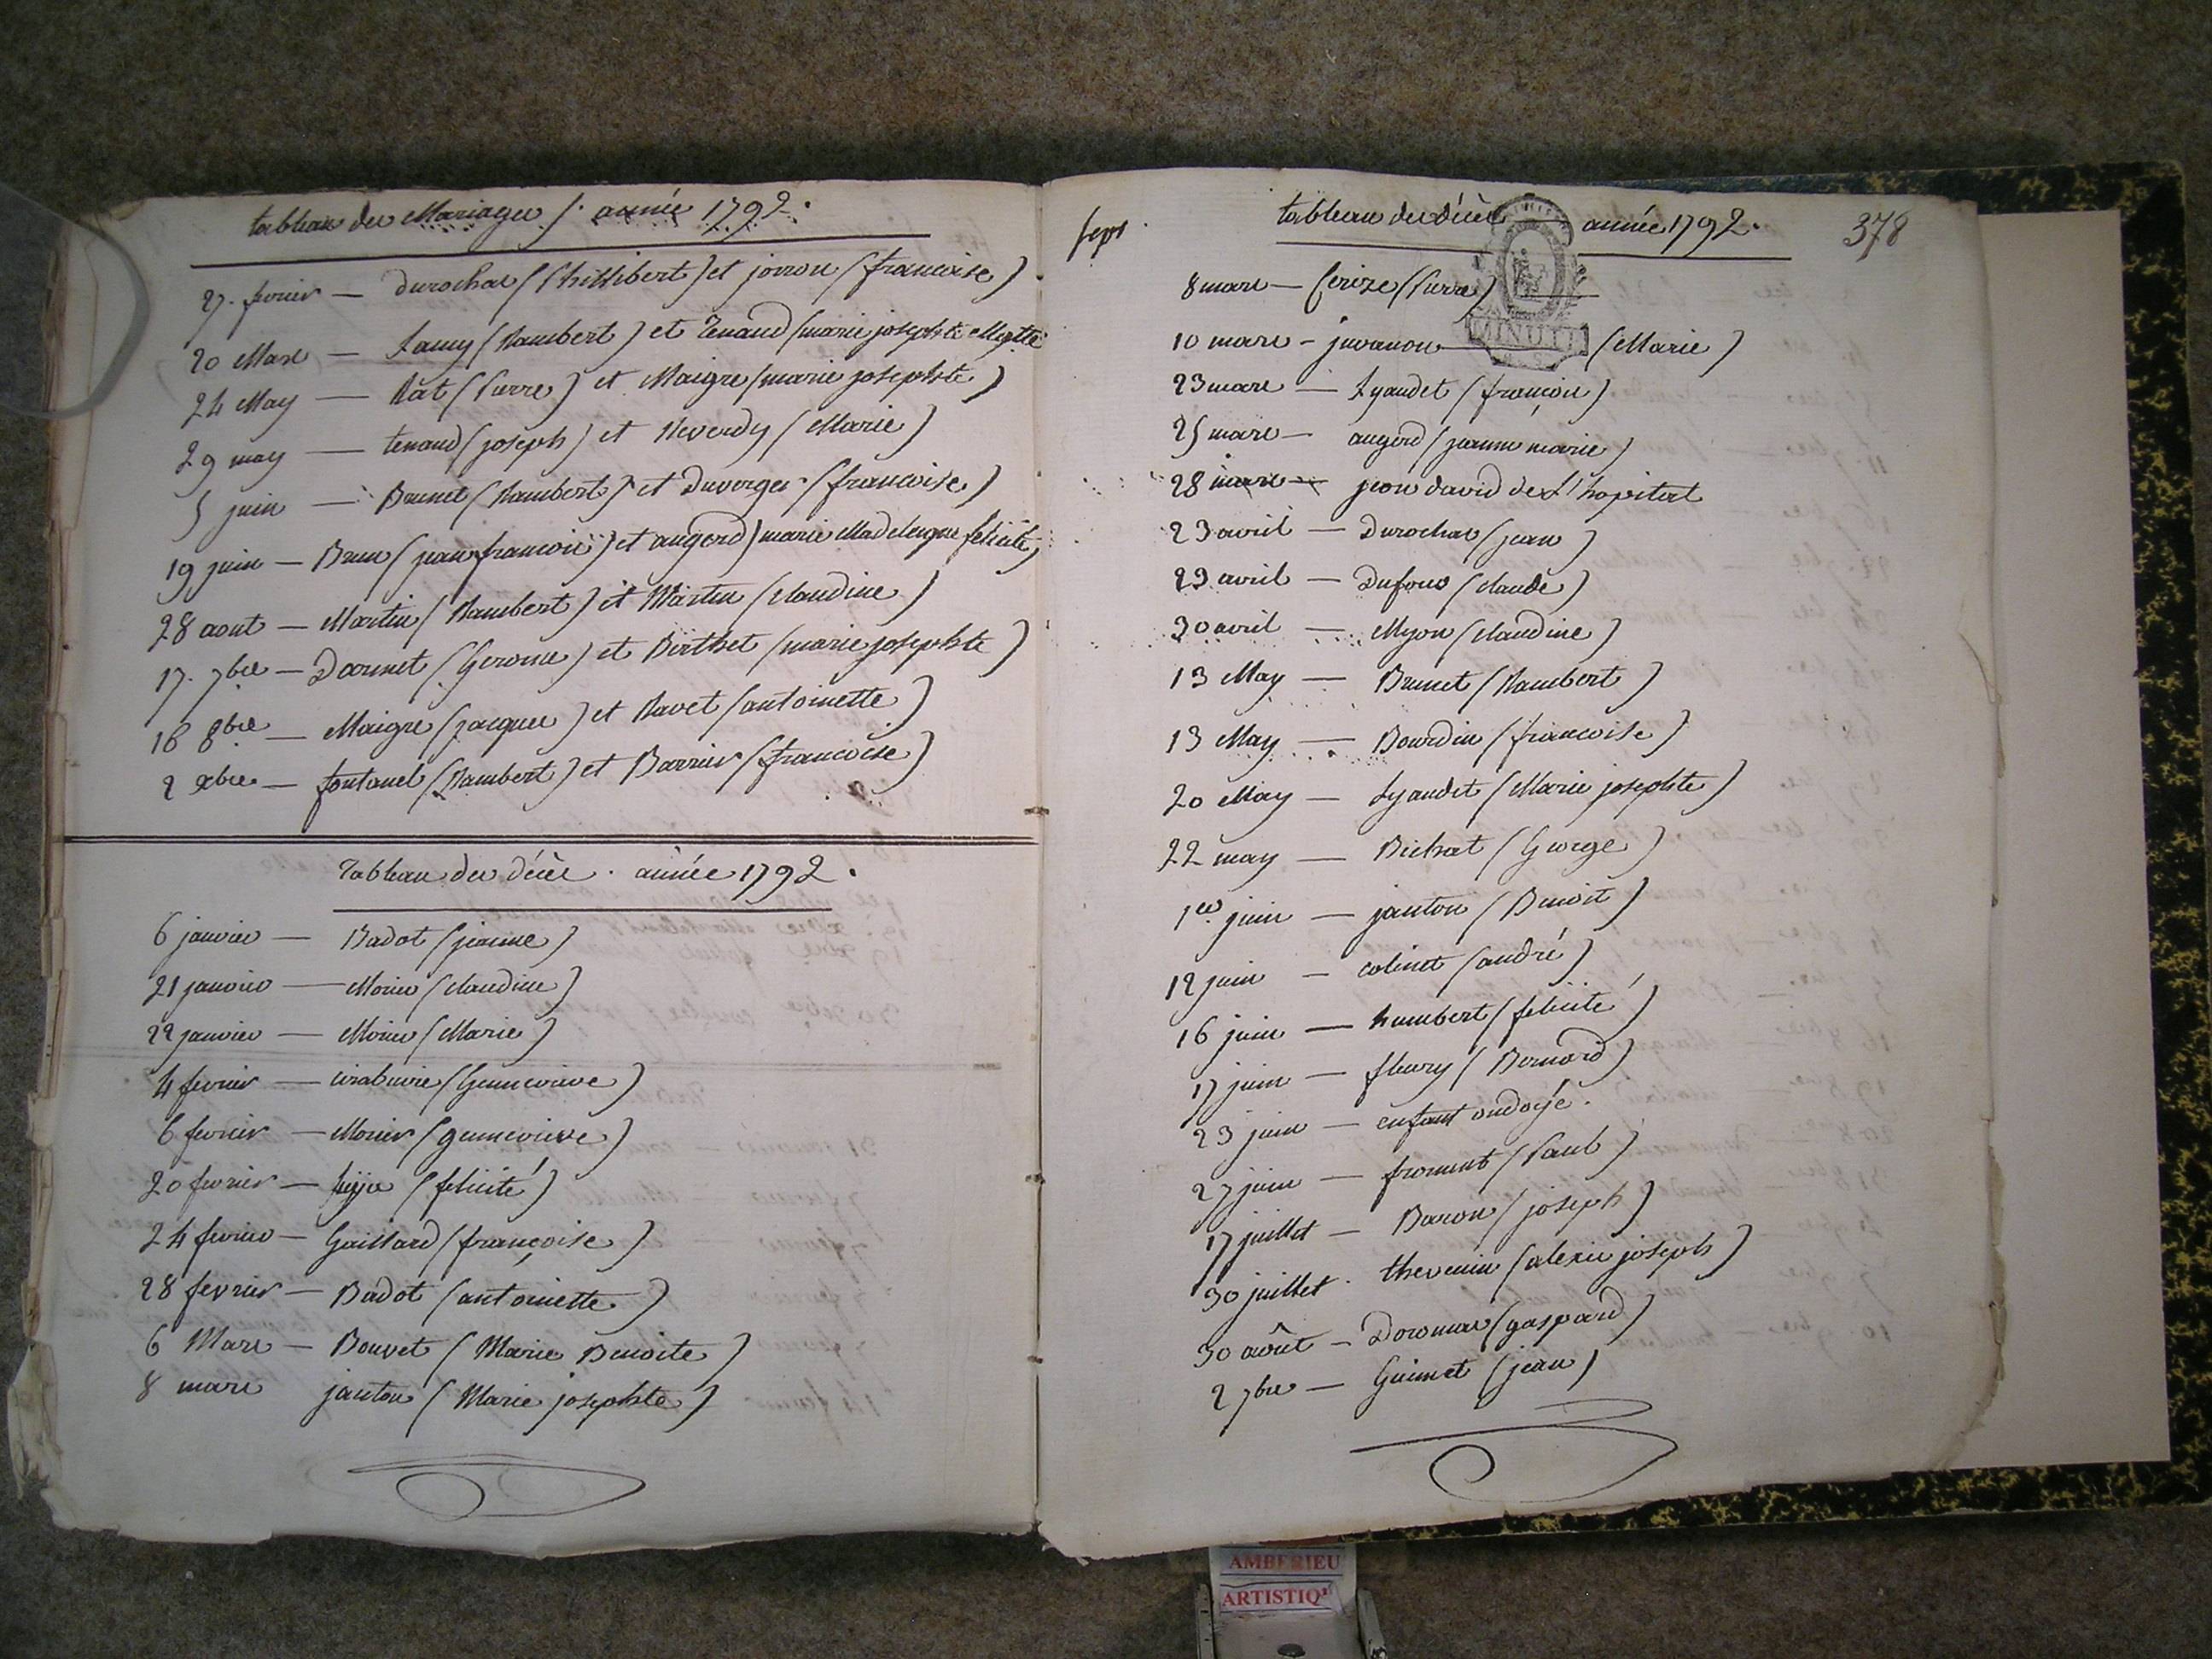 tableau des Mariages /. année 1792.
27. fevrier — Durochat (Phillibert) et jorron (francoise)
20 Mars — Lamy (Rambert) et Tenand (marie josephte Mgtte
24 May — Rât (Pierre) et Maigre (marie josephte)
29 may — tenand (joseph) et Reverdy (Marie)
5 juin — Brunet (Rambert) et Duverger (francoise)
19 juin — Brun (jean francois) et augerd (marie Madeleigne felicité)
28 aout — Martin (Rambert) et Martin (claudine)
17. 7bre — Darmet (Gerome) et Berthet (marie josephte)
16 8bre — Maigre (jacques) et Ravet (antoinette)
2 xbre — fontanel (Rambert) et Barrier (francoise)
Tableau des décès . année 1792.
6 janvier — Badot (jeanne)
21 janvier — Morier (claudine)
22 janvier — Morier (Marie)
4 fevrier — (Genevieve)
6 fevrier — Morier (genevieve)
20 fevrier — (felicité)
24 fevrier — Gaillard (françoise)
28 fevrier — Badot (antoinette)
6 Mars — Bouvet (Marie Benoite)
8 mars janton (Marie josephte)
sept.
tableau des décès — année 1792.
378
MINUTE
8 mars — Cerize (Pierre)
10 mars - juvanon (Marie)
23 mars — Lyaudet (françois)
25 mars — augerd (jeanne marie)
28 mars — jean david de L'hopital
23 avril — Durochat (jean)
29 avril — Dufour (claude)
30 avril — Myon (claudine)
13 May — Brunet (Rambert)
13 May — Bourdin (francoise)
20 May — Lyaudet (Marie josephte)
22 may — Bichat (George)
1er juin — janton (Benoit)
12 juin — colinet (andré)
16 juin — humbert (felicité)
17 juin — fleury (Bernard)
23 juin — enfant ondoyé.
27 juin — froment (Paul)
17 juillet — Baron (joseph)
30 juillet. thevenin (alexis joseph)
30 août — (gaspard)
2 7bre — Guinet (jean)
AMBERIEU
ARTISTIQ